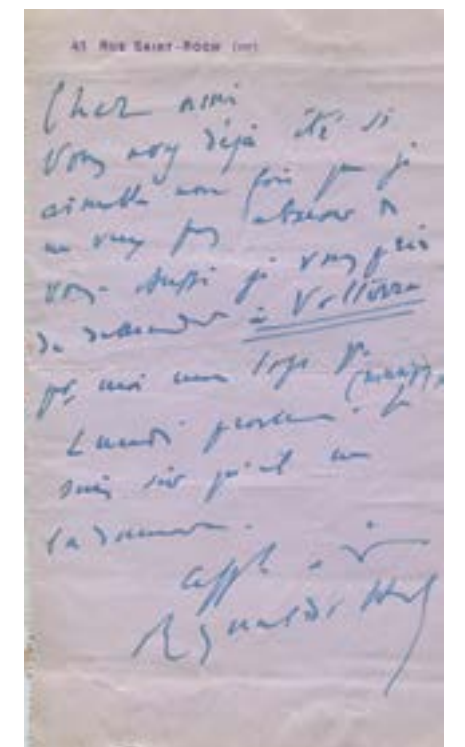 41 RUE SAINT-ROCH (1er)
Cher ami
Vous avez déjà été si
aimable une fois que je
ne veux pas abuser de
vous. Aussi je vous prie
de demander à Volterra
pr moi une loge pr
Lundi prochain. Je
suis sûr qu'il me
la donnera.
Reynaldo Hahn